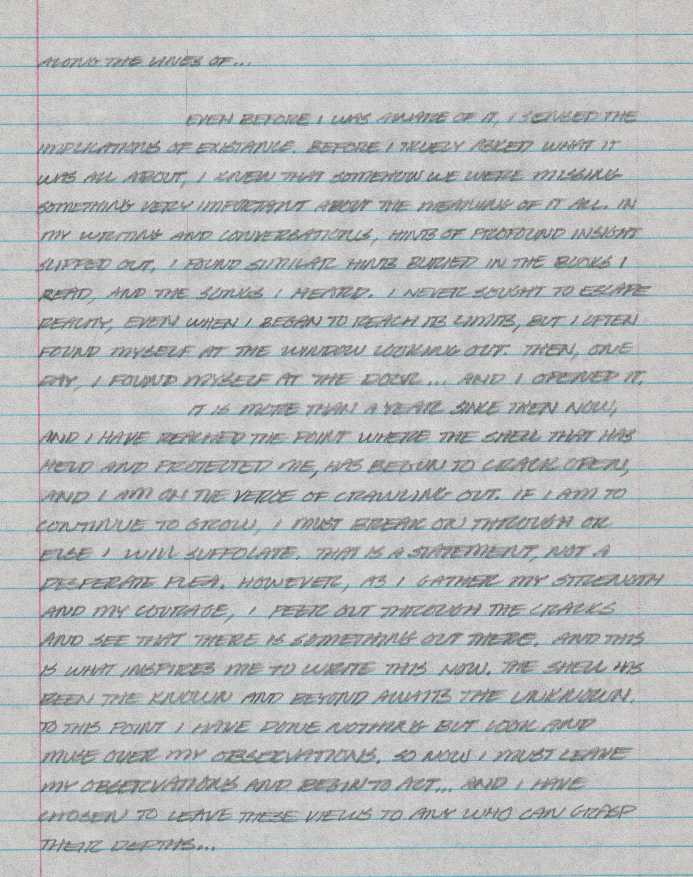 ALONG THE LINES OF...
EVEN BEFORE I WAS AWARE OF IT, I SENSED THE
IMPLICATIONS OF EXISTANCE. BEFORE I TRUELY ASKED WHAT IT
WAS ALL ABOUT, I KNEW THAT SOMEHOW WE WERE MISSING
SOMETHING VERY IMPORTANT ABOUT THE MEANING OF IT ALL. IN
MY WRITING AND CONVERSATIONS, HINTS OF PROFOUND INSIGHT
SLIPPED OUT. I FOUND SIMILAR HINTS BURIED IN THE BOOKS I
READ, AND THE SONGS I HEARD. I NEVER SOUGHT TO ESCAPE
REALITY, EVEN WHEN I BEGAN TO REACH ITS LIMITS, BUT I OFTEN
FOUND MYSELF AT THE WINDOW LOOKING OUT. THEN, ONE
DAY, I FOUND MYSELF AT THE DOOR... AND I OPENED IT.
IT IS MORE THAN A YEAR SINCE THEN NOW,
AND I HAVE REACHED THE POINT WHERE THE SHELL THAT HAS
HELD AND PROTECTED ME, HAS BEGUN TO CRACK OPEN,
AND I AM ON THE VERGE OF CRAWLING OUT. IF I AM TO
CONTINUE TO GROW, I MUST BREAK ON THROUGH OR
ELSE I WILL SUFFOCATE. THAT IS A STATEMENT, NOT A
DESPERATE PLEA. HOWEVER, AS I GATHER MY STRENGTH
AND MY COURAGE, I PEER OUT THROUGH THE CRACKS
AND SEE THAT THERE IS SOMETHING OUT THERE. AND THIS
IS WHAT INSPIRES ME TO WRITE THIS NOW. THE SHELL HAS
BEEN THE KNOWN AND BEYOND AWAITS THE UNKNOWN.
TO THIS POINT I HAVE DONE NOTHING BUT LOOK AND
MUSE OVER MY OBSERVATIONS. SO NOW I MUST LEAVE
MY OBSERVATIONS AND BEGIN TO ACT... AND I HAVE
CHOSEN TO LEAVE THESE VIEWS TO ANY WHO CAN GRASP
THEIR DEPTHS...